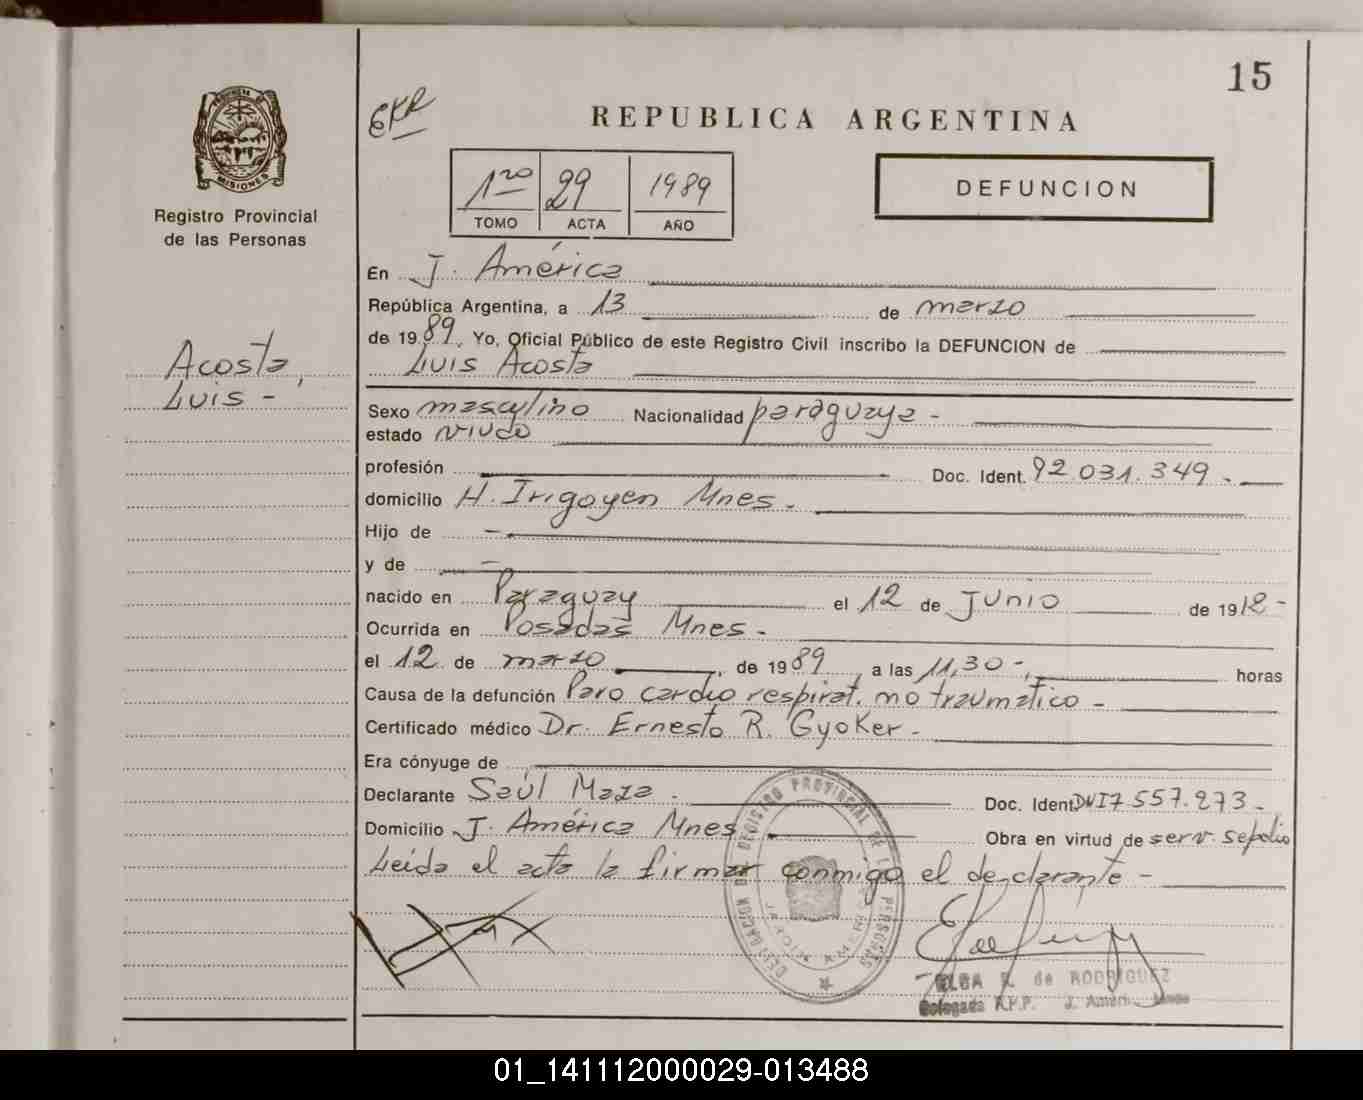 15
EXP
REPUBLICA ARGENTINA
PROVINCIA DE
MISIONES
Registro Provincial
de las Personas
1ro 29 1989
TOMO ACTA AÑO
DEFUNCION
En J. América
República Argentina, a 13 de marzo
de 1989. Yo, Oficial Público de este Registro Civil inscribo la DEFUNCION de
Luis Acosta
Acosta,
Luis -
Sexo masculino Nacionalidad paraguaya -
estado viudo
profesión Doc. Ident. 92.031.349.-
domicilio H. Irigoyen Mnes.
Hijo de -
y de -
nacido en Paraguay el 12 de Junio de 1912-
Ocurrida en Posadas Mnes.-
el 12 de marzo, de 1989, a las 11,30-, horas
Causa de la defunción Paro cardio respirat. no traumatico -
Certificado médico Dr. Ernesto R. Gyoker-
Era cónyuge de
Declarante Saúl Maza. Doc. Ident. DNI 7.557.273-
Domicilio J. América Mnes Obra en virtud de serv. sepelio
Leída el acta la firman conmigo el declarante -
DELEGACION DEL REGISTRO PROVINCIAL DE LAS PERSONAS
JARDIN AMERICA
ELGA de RODRIGUEZ
Delegada R.P.P. J. América
01_141112000029-013488